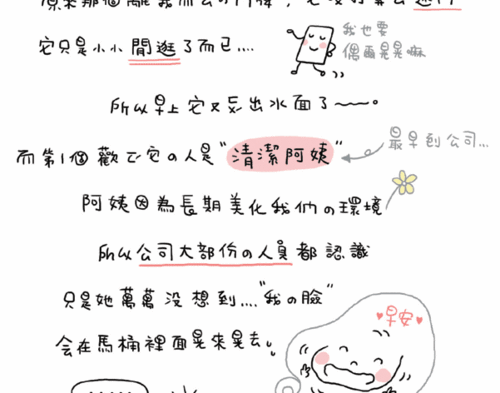 原來那個離我而去の
它只是小小閒逛了而已....
我也要
偶爾晃晃嘛
所以早上它又出水面了~~~。
最早到公司...
而第1個它の人是"清潔阿姨"
阿姨因為長期美化我們の環境
所以公司大部份の人員都認識
只是她萬萬沒想到...."我の臉"
♥早安♥
会在馬桶裡面晃來晃去。